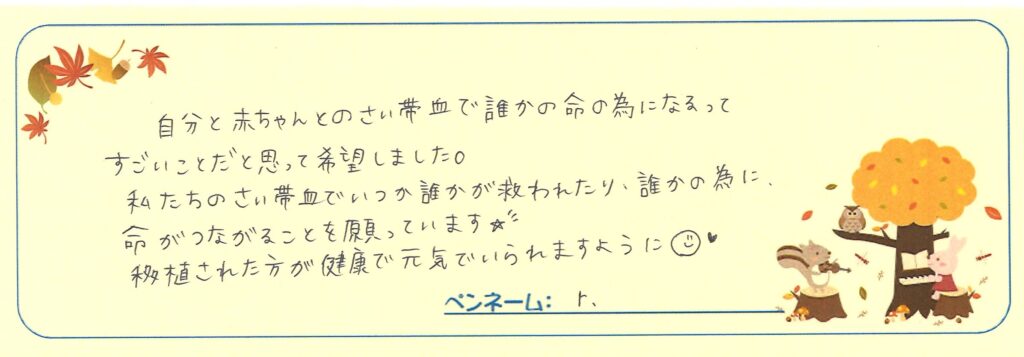 自分と赤ちゃんとのさい帯血で誰かの命の為になるって
すごいことだと思って希望しました。
私たちのさい帯血でいつか誰かが救われたり、誰かの為に、
命がつながることを願っています☆
移植された方が健康で元気でいられますように☺♥
ペンネーム： r.